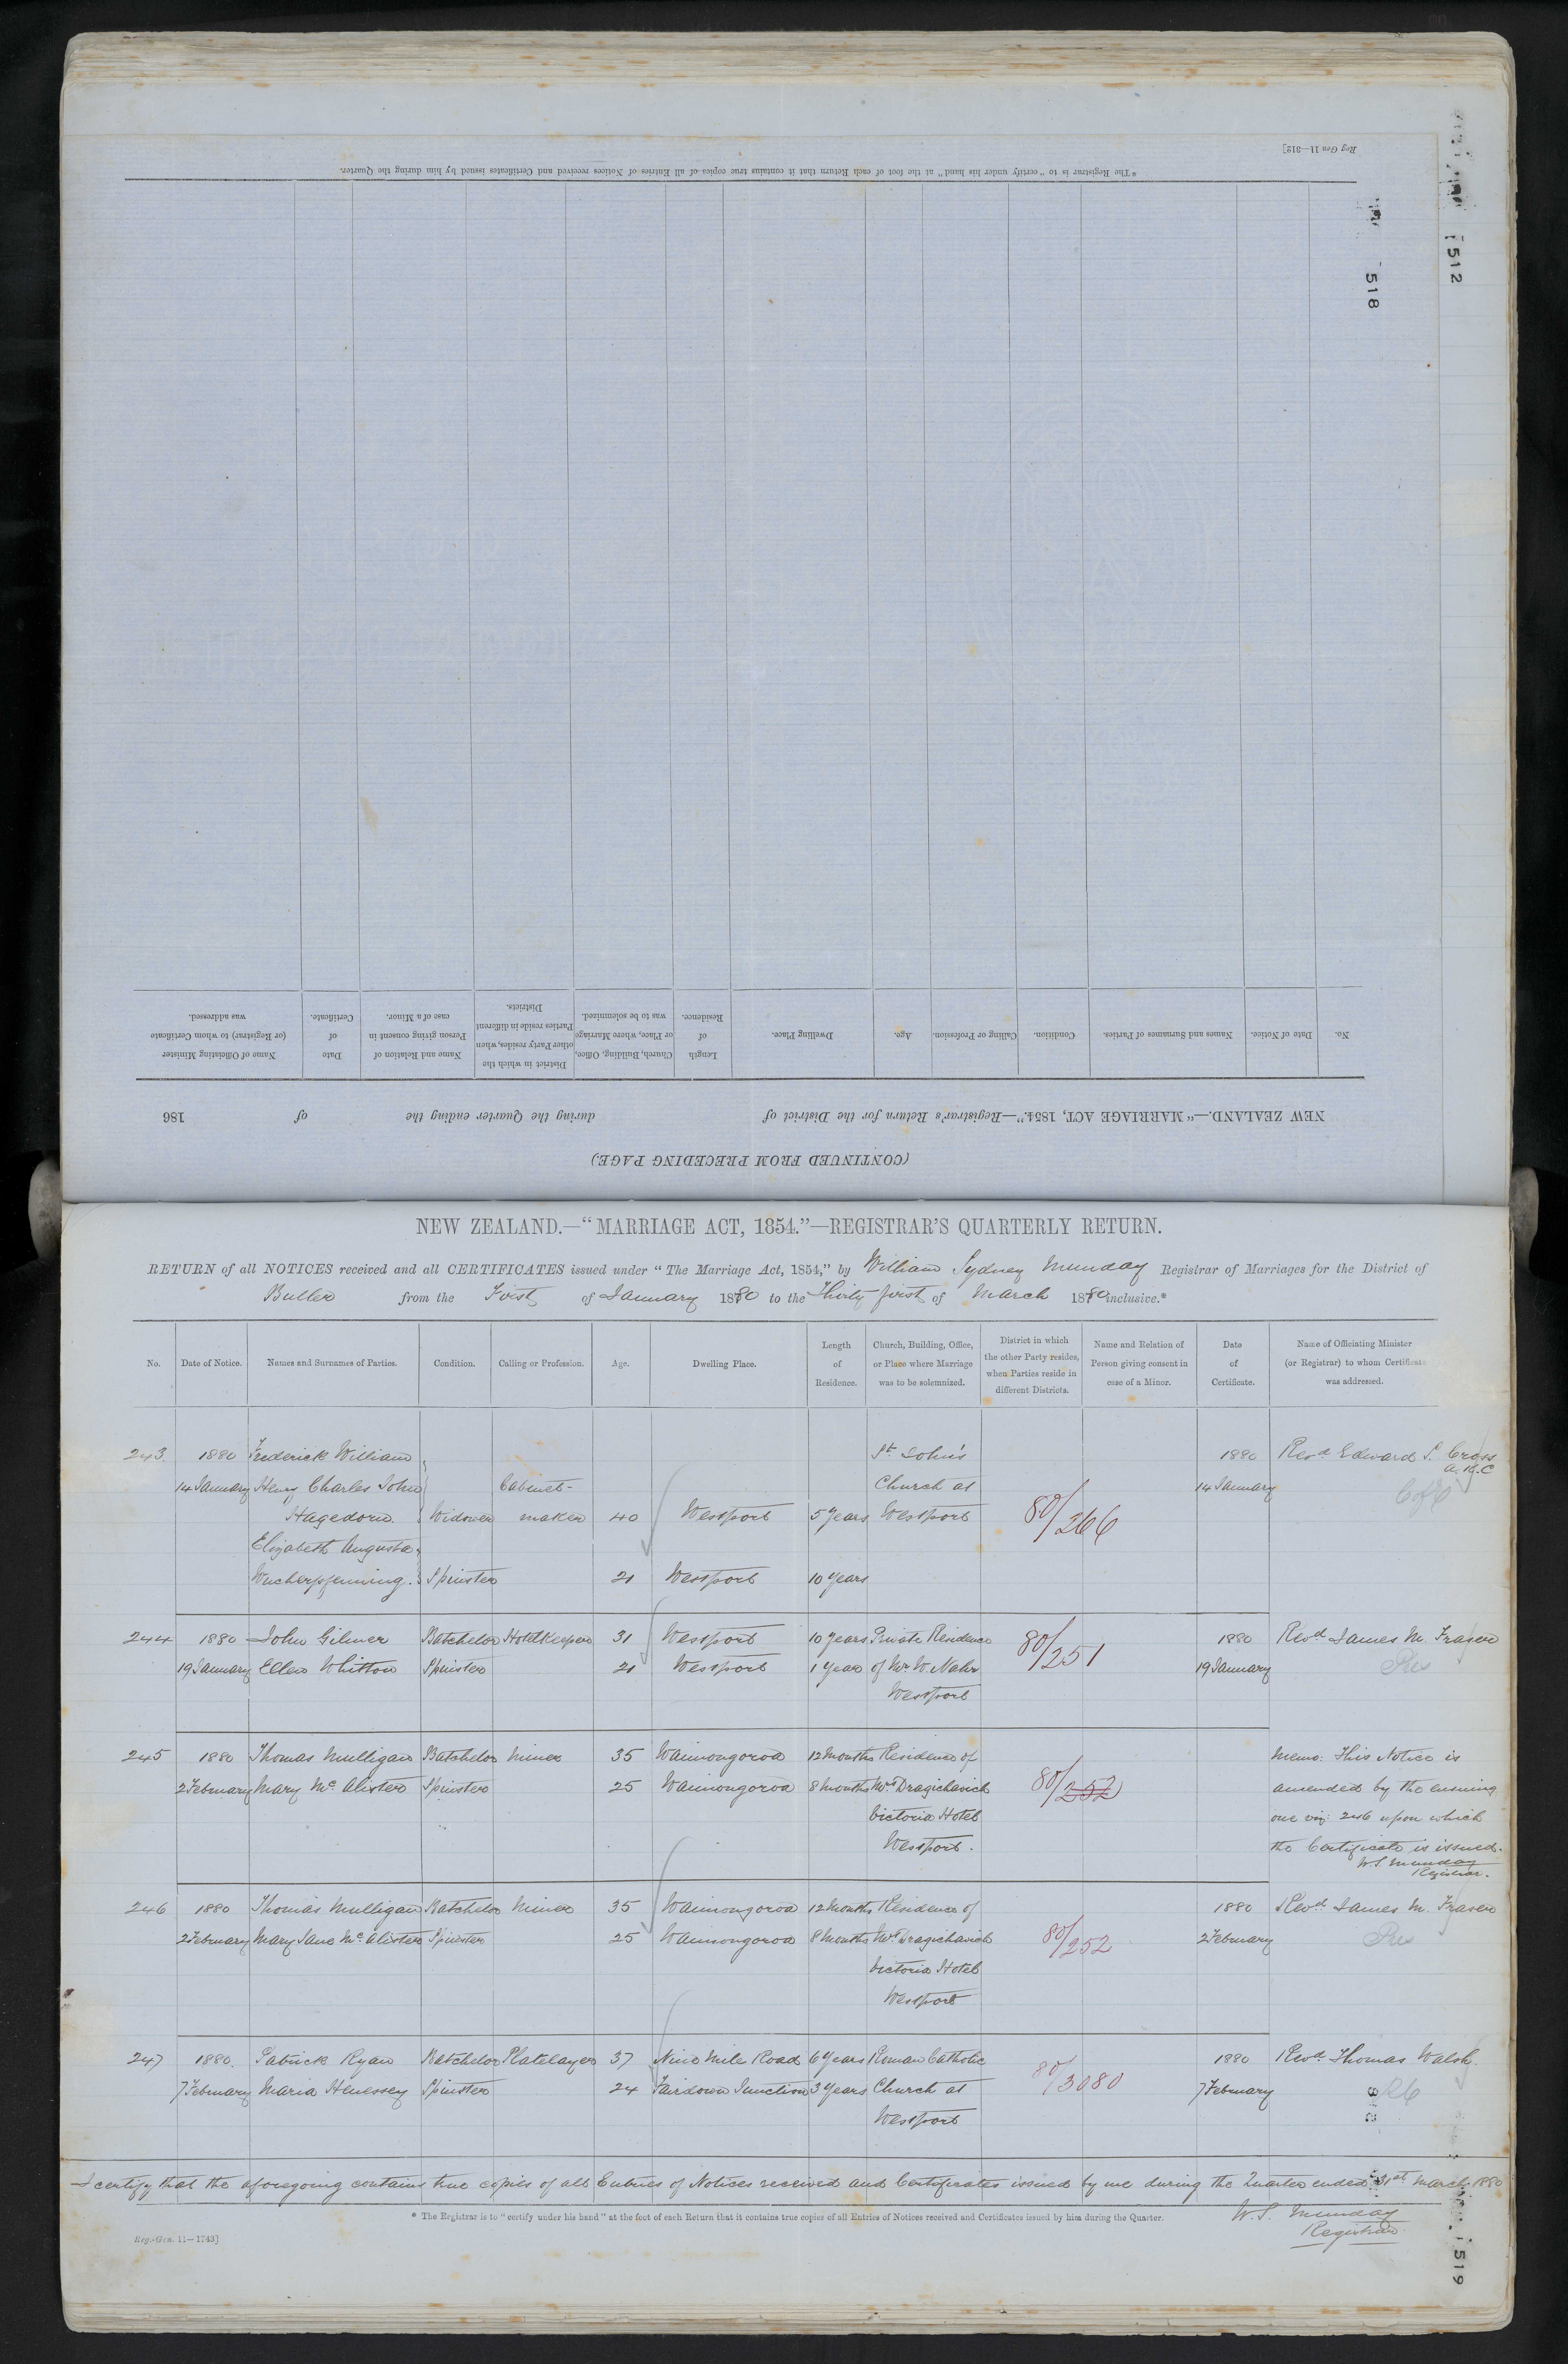 Reg Gen 11—312]
* The Registrar is to "certify under his hand" at the foot of each Return that it contains true copies of all Entries of Notices received and Certificates issued by him during the Quarter.
512
518
(CONTINUED FROM PRECEDING PAGE)
NEW ZEALAND.—"MARRIAGE ACT, 1854."—Registrar's Return for the District of during the Quarter ending the of 186
No. Date of Notice. Names and Surnames of Parties. Condition. Calling or Profession. Age. Dwelling Place. Length of Residence. Church, Building, Office, or Place, where Marriage was to be solemnized. District in which the other Party resides, when Parties reside in different Districts. Name and Relation of Person giving consent in case of a Minor. Date of Certificate. Name of Officiating Minister (or Registrar) to whom Certificate was addressed.
NEW ZEALAND.—"MARRIAGE ACT, 1854."—REGISTRAR'S QUARTERLY RETURN.
RETURN of all NOTICES received and all CERTIFICATES issued under "The Marriage Act, 1854," by William Sydney Munday Registrar of Marriages for the District of
Buller from the First of January 1880 to the Thirty first of March 1880 inclusive.*
No. Date of Notice. Names and Surnames of Parties. Condition. Calling or Profession. Age. Dwelling Place. Length of Residence. Church, Building, Office, or Place where Marriage was to be solemnized. District in which the other Party resides, when Parties reside in different Districts. Name and Relation of Person giving consent in case of a Minor. Date of Certificate. Name of Officiating Minister (or Registrar) to whom Certificate was addressed.
243 1880 Frederick William St John's 1880 Revd Edward S. Cross
A.K.C
14 January Henry Charles John Cabinet- Church at 14 January C of E
Hagedorn Widower maker 40 Westport 5 Years Westport 80/266
Elizabeth Augusta
Wucherpfenning. Spinster 21 Westport 10 Years
244 1880 John Gilmer Batchelor Hotelkeeper 31 Westport 10 Years Private Residence 80/251 1880 Revd James M. Fraser
19 January Ellen Whitton Spinster 21 Westport 1 Year of Mr W. Nahr 19 January Pres
Westport
245 1880 Thomas Mulligan Batchelor Miner 35 Waimongoroa 12 Months Residence of Memo: This Notice is
2 February Mary McAlister Spinster 25 Waimongoroa 8 Months Mrs Dragichavich 80/252 amended by the ensuing
Victoria Hotel one viz: 246 upon which
Westport. the Certificate is issued.
W.S. Munday
Registrar.
246 1880 Thomas Mulligan Batchelor Miner 35 Waimongoroa 12 Months Residence of 1880 Revd James M. Fraser
2 February Mary Jane McAlister Spinster 25 Waimongoroa 8 Months Mrs Dragichavich 80/252 2 February Pres
Victoria Hotel
Westport
247 1880. Patrick Ryan Batchelor Platelayer 37 Nine Mile Road 6 Years Roman Catholic 80/3080 1880 Revd Thomas Walsh.
7 February Maria Henessey Spinster 24 Fairdown Junction 3 Years Church at 7 February RC
Westport
I certify that the aforegoing contains true copies of all Entries of Notices received and Certificates issued by me during the Quarter ended 31st March 1880
* The Registrar is to "certify under his hand" at the foot of each Return that it contains true copies of all Entries of Notices received and Certificates issued by him during the Quarter.
W. S. Munday
Registrar.
Reg.-Gen. 11—1743]
519